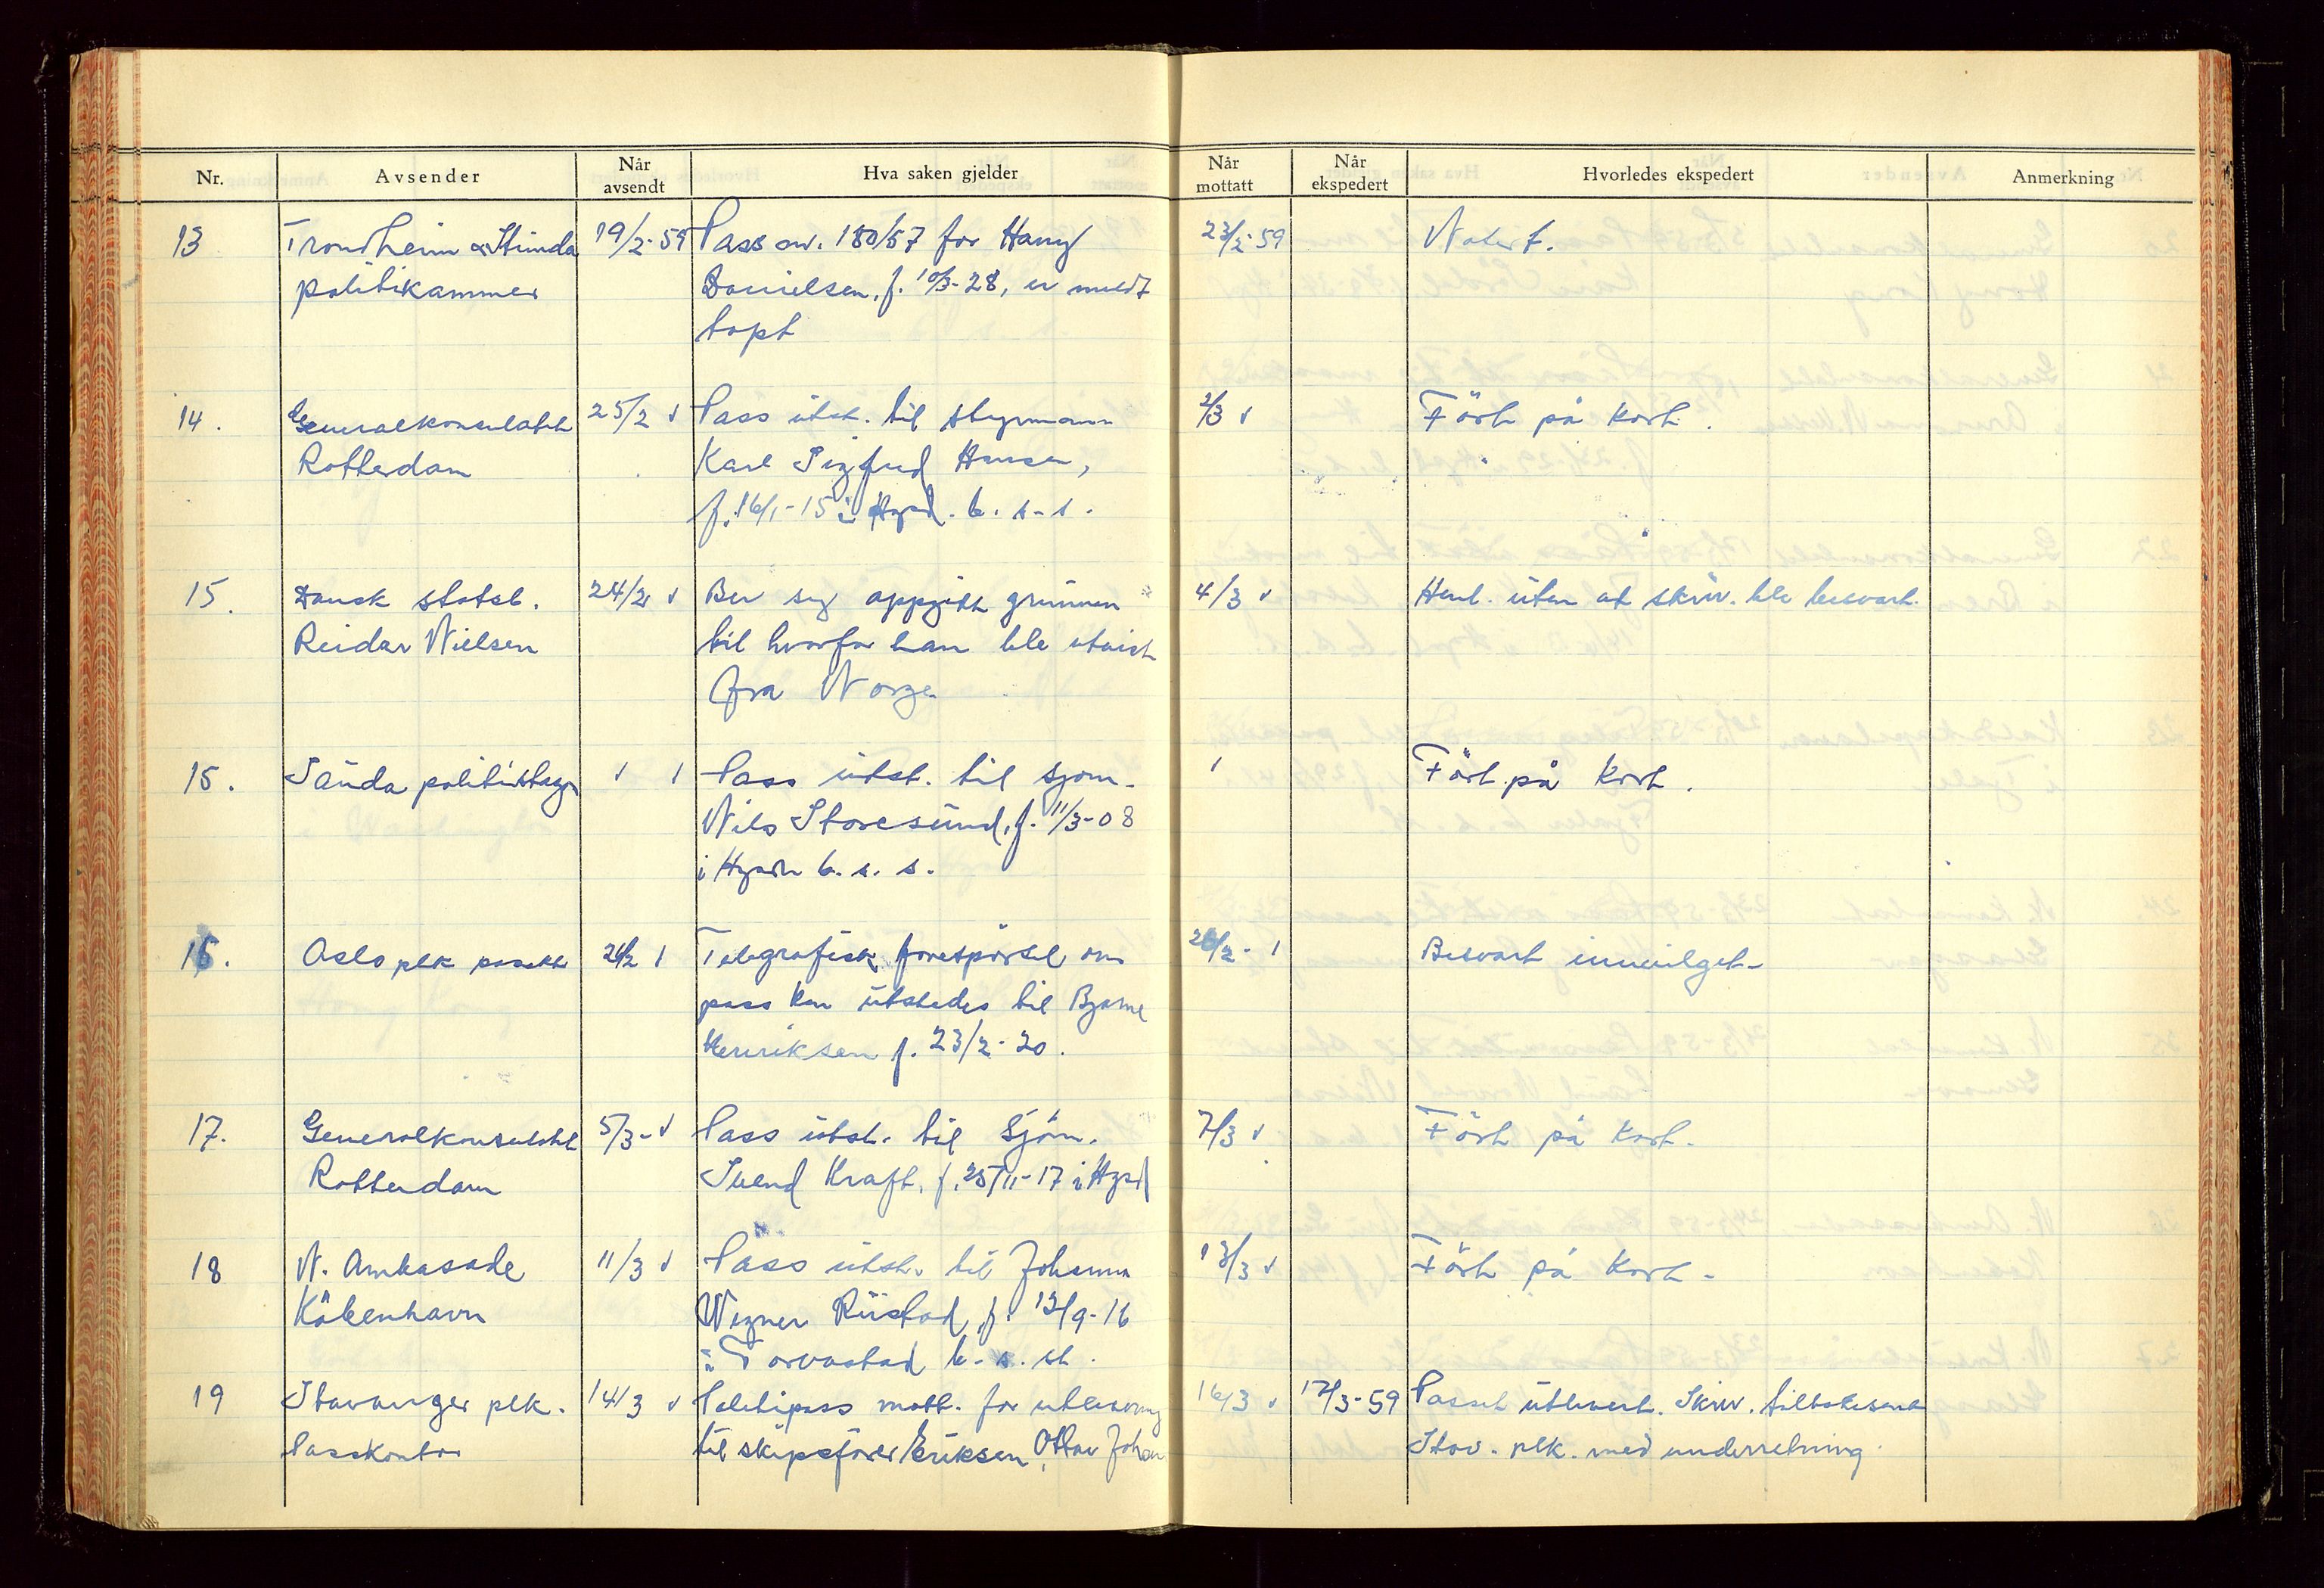 Nr. Avsender Når avsendt Hva saken gjelder Når mottatt Når ekspedert Hvorledes ekspedert Anmerkning
13 Trondheim & Strinda 19/2-59 Pass nr. 180/57 for Harry 23/2-59 Notert.
politikammer Danielsen, f. 10/3-28, er meldt
tapt
14. Generalkonsulatet 25/2 v Pass utst. til styrmann 2/3 v Ført på kort.
Rotterdam Karl Sigfred Hansen,
f. 16/1-15 i Hgsd. b. s. s.
15. Dansk statsb. 24/2 v Ber seg oppgitt grunnen 4/3 v Henl. uten at skriv. ble besvart.
Reidar Nielsen til hvorfor han ble utvist
fra Norge
15. Sauda politistasj v v Pass utst. til sjøm. v Ført på kort.
Nils Storesund, f. 11/3-08
i Hgsd b. s. s.
16. Oslo plk 26/2 v Telegrafisk forespørsel om 26/2- v Besvart innvilget-
pass kan utstedes til Bjarne
Henriksen f. 23/2-20.
17. Generalkonsulatet 5/3- v Pass utst. til Sjøm. 7/3 v Ført på kort.
Rotterdam Svend Kraft, f. 25/11-17 i Hgsd
18 N. Ambasade 11/3 v Pass utst. til Johanna 13/3 v Ført på kort-
København Wegner Riistad, f. 13/9-16
i Torvastad b. s. st.
19 Stavanger plk. 14/3 v mott. for utlevering 16/3 v 17/3-59 Passet utlevert. Skriv. tilbakesendt
Passkontor til skipsfører Eriksen, Ottar Johan Stav. plk. med underretning.